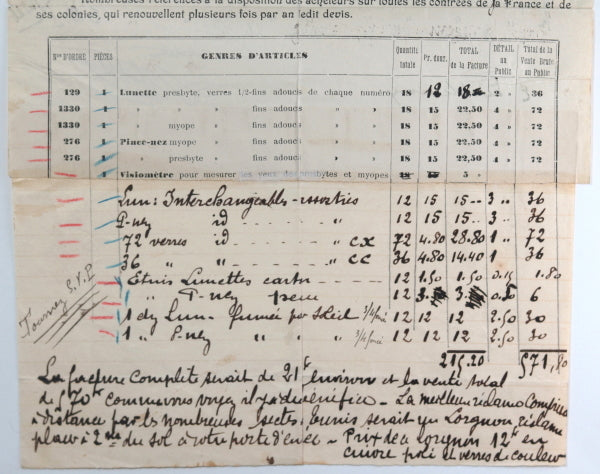 Nombreuses références à la disposition des acheteurs sur toutes les contrées de la France et de
ses colonies, qui renouvellent plusieurs fois par an ledit devis.
Nos D'ORDRE PIÈCES GENRES D'ARTICLES Quantité totale Pr. douz. TOTAL de la Facture DÉTAIL au Public Total de la Vente Brute au Public
129 1 Lunette presbyte, verres 1/2-fins adoucis de chaque numéro 18 12 18 2 » 36
1330 1 » » fins adoucis » » 18 15 22,50 4 » 72
1330 1 » myope » fins adoucis » » 18 15 22,50 4 » 72
276 1 Pince-nez myope » fins adoucis » » 18 15 22,50 4 » 72
276 1 » presbyte » fins adoucis » » 18 15 22,50 4 » 72
1 Visiomètre pour mesurer les yeux des presbytes et myopes 18 15 5 »
Lun: Interchangeables - assorties 12 15 15 .. 3 ,, 36
P-nez id - - - - - " 12 15 15 .. 3 ,, 36
72 verres id - - - - - " CX 72 4.80 28.80 1 " 72
36 " " - - - - - " CC 36 4.80 14.40 1 36
Etuis Lunettes carton - - - - 12 1.50 1.50 0.15 1.80
" P-nez peau " 12 3. 3. 0.50 6
1 dz Lun - fumée per soleil 3/4 12 12 12 2.50 30
1 " P-nez " " " 3/4 12 12 12 2.50 30
Tournez S.V.P
216.20 571,80
La facture complète serait de 21 environ et la vente total
de 570 comme vous voyez il y a du bénéfice - La meilleur réclame
à distance par les nombreuses serait un Lorgnon réclame
placé à 2 du sol à votre porte d'entée - Prix de Lorgnon 12 en
cuivre poli et verres de couleur